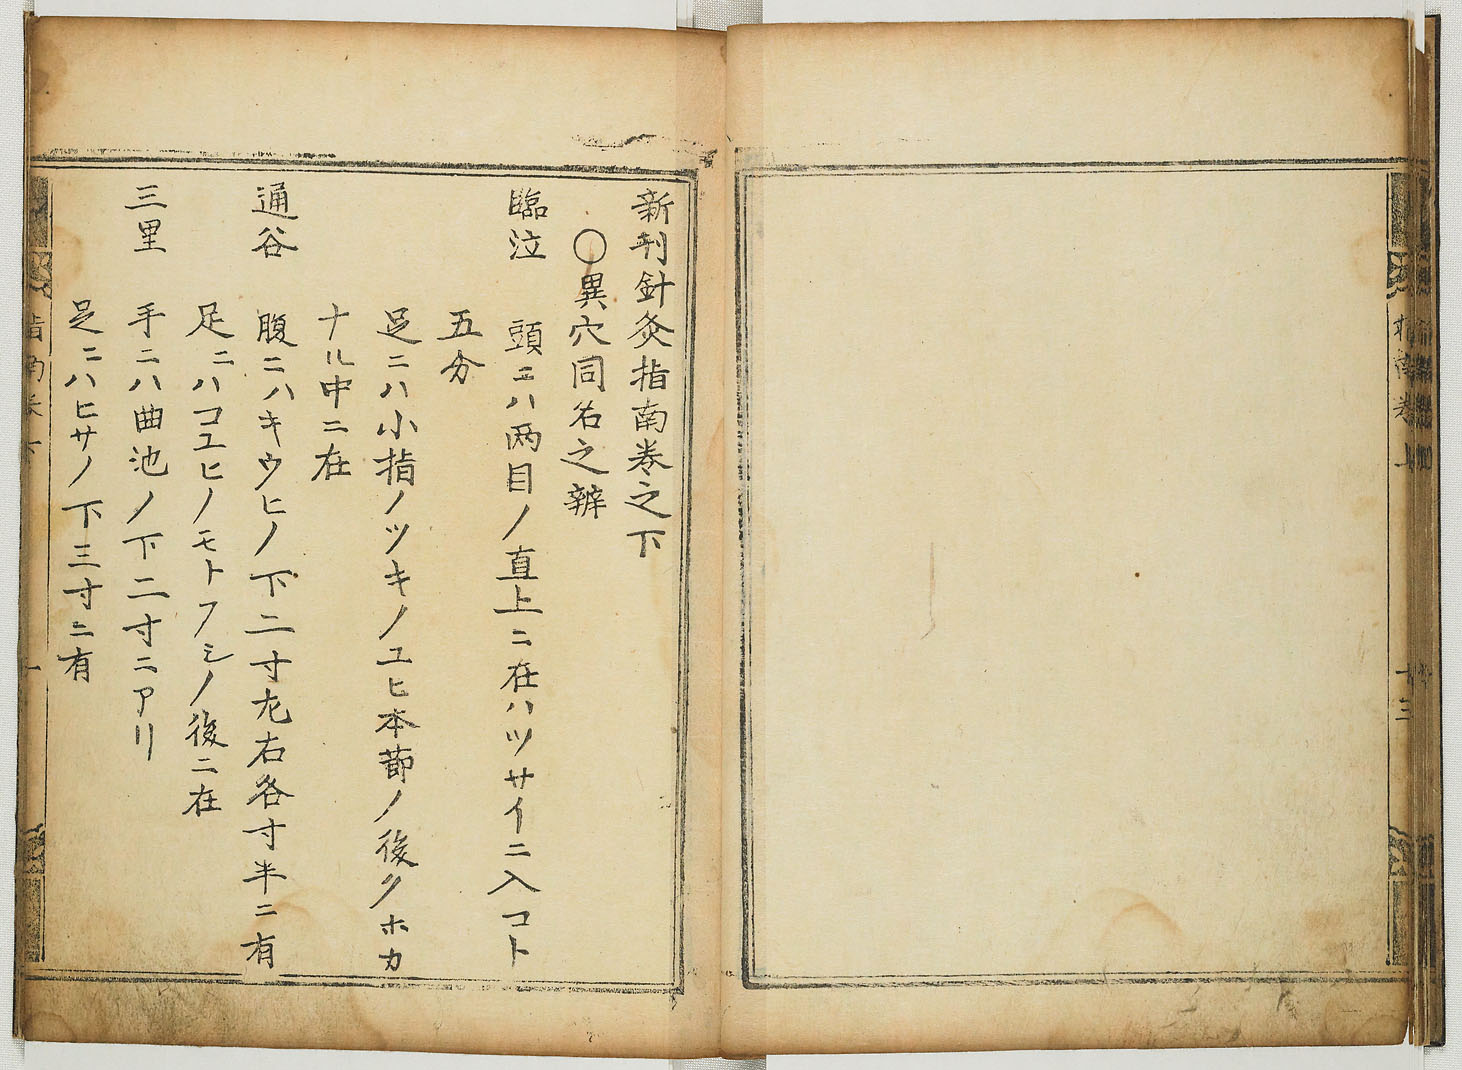 新刊針灸指南巻之下
○異穴同名之辨
臨泣　頭ニハ两目ノ直上ニ在ハツサイニ入コト
五分
足ニハ小指ノツキノユヒ本節ノ後クホカ
ナル中ニ在
通谷　腹ニハキウヒノ下二寸左右各寸半ニ有
足ニハコユヒノモトフシノ後ニ在
三里　手ニハ曲池ノ下二寸ニアリ
足ニハヒサノ下三寸ニ有